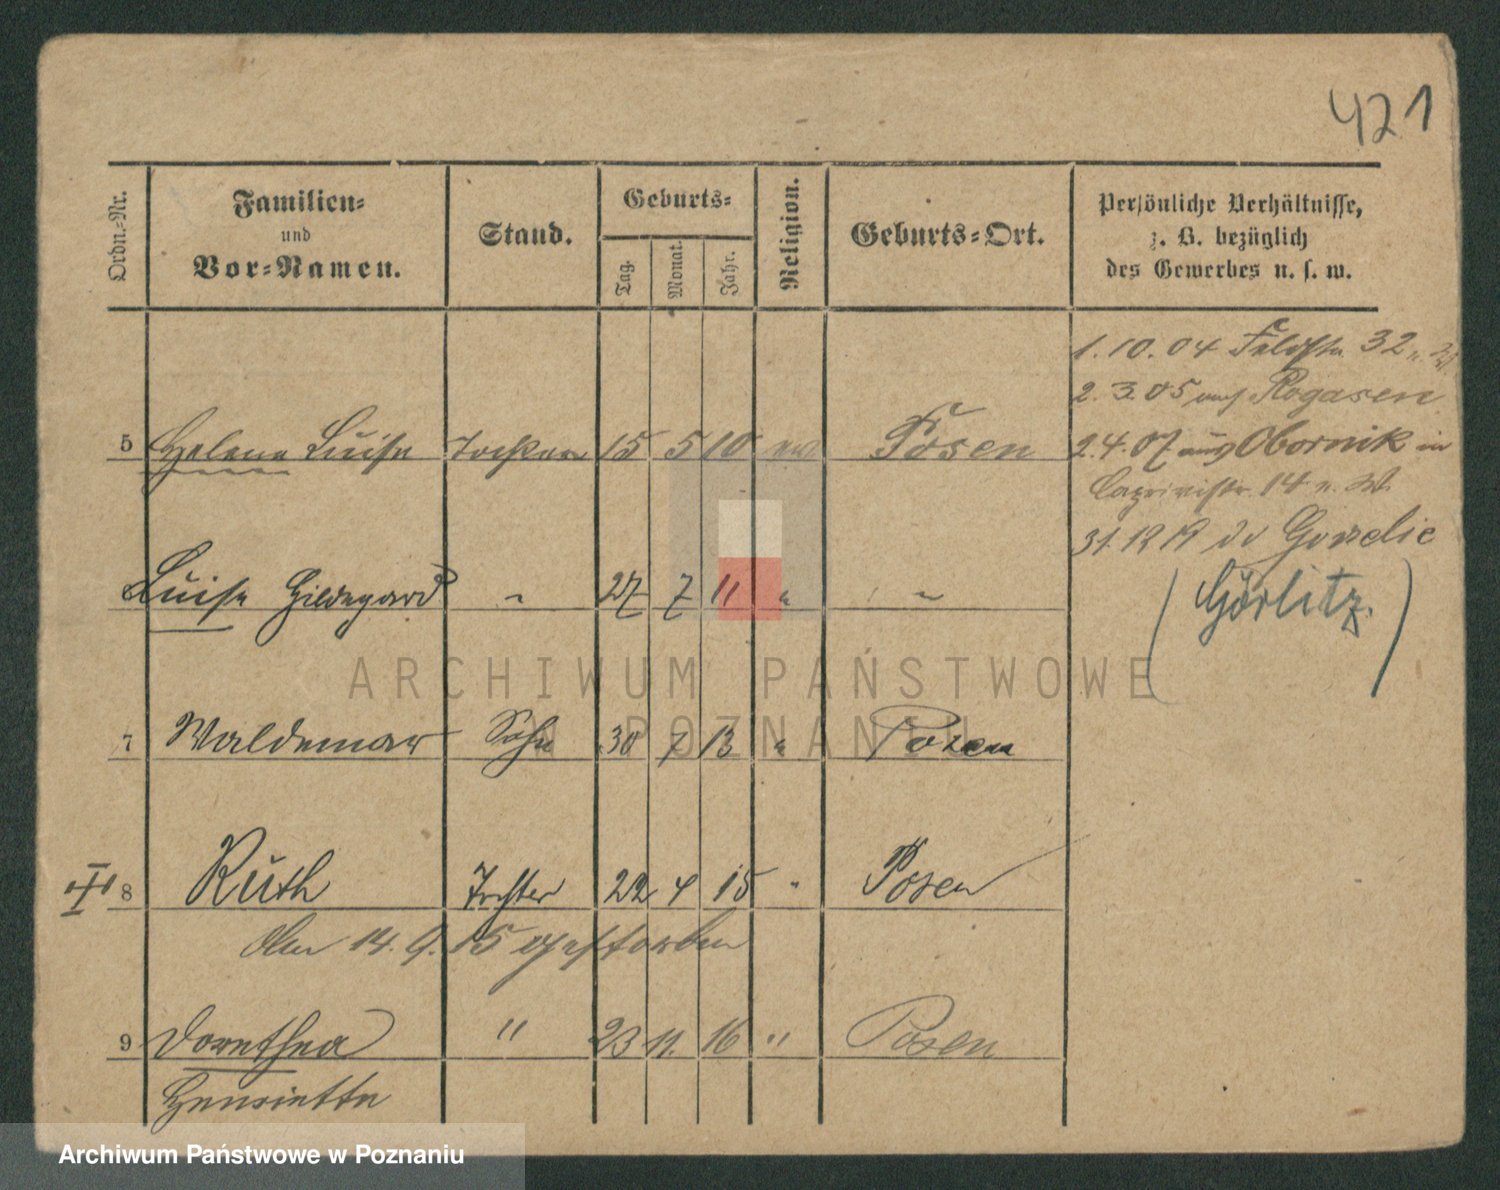 421
Ordn.-Nr.
Familien-
und
Vor-Namen.
Stand.
Geburts-
Tag.
Monat.
Jahr.
Religion.
Geburts-Ort.
Persönliche Verhältnisse,
z. B. bezüglich
des Gewerbes u. s. w.
1.10.04 Feldstr. 32
2.3.05 auf Rogasen
5 Helene Luise Tochter 15 5 10 ev Posen
2.4.07 aus Obornik in
Caprivistr. 14 n. W.
31.12.19 Goerzelic
6 Luise Hildegard " 27 7 11 " "
(Görlitz.)
7 Waldemar Sohn 30 7 13 " Posen
8 Ruth Tochter 22 4 15 " Posen
Am 14.9.15 gestorben
9 Dorothea " 23 11. 16 " Posen
Henriette
ARCHIWUM PAŃSTWOWE
W POZNANIU
Archiwum Państwowe w Poznaniu